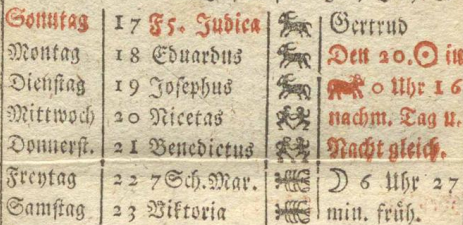 Sonntag 17 F5. Judica Gertrud
Montag 18 Eduardus Den 20. ☉ in
Dienstag 19 Josephus 0 Uhr 16
Mittwoch 20 Nicetas nachm. Tag u.
Donnerst. 21 Benedictus Nacht gleich.
Freytag 22 7Sch.Mar. ☽ 6 Uhr 27
Samstag 23 Viktoria min. früh.